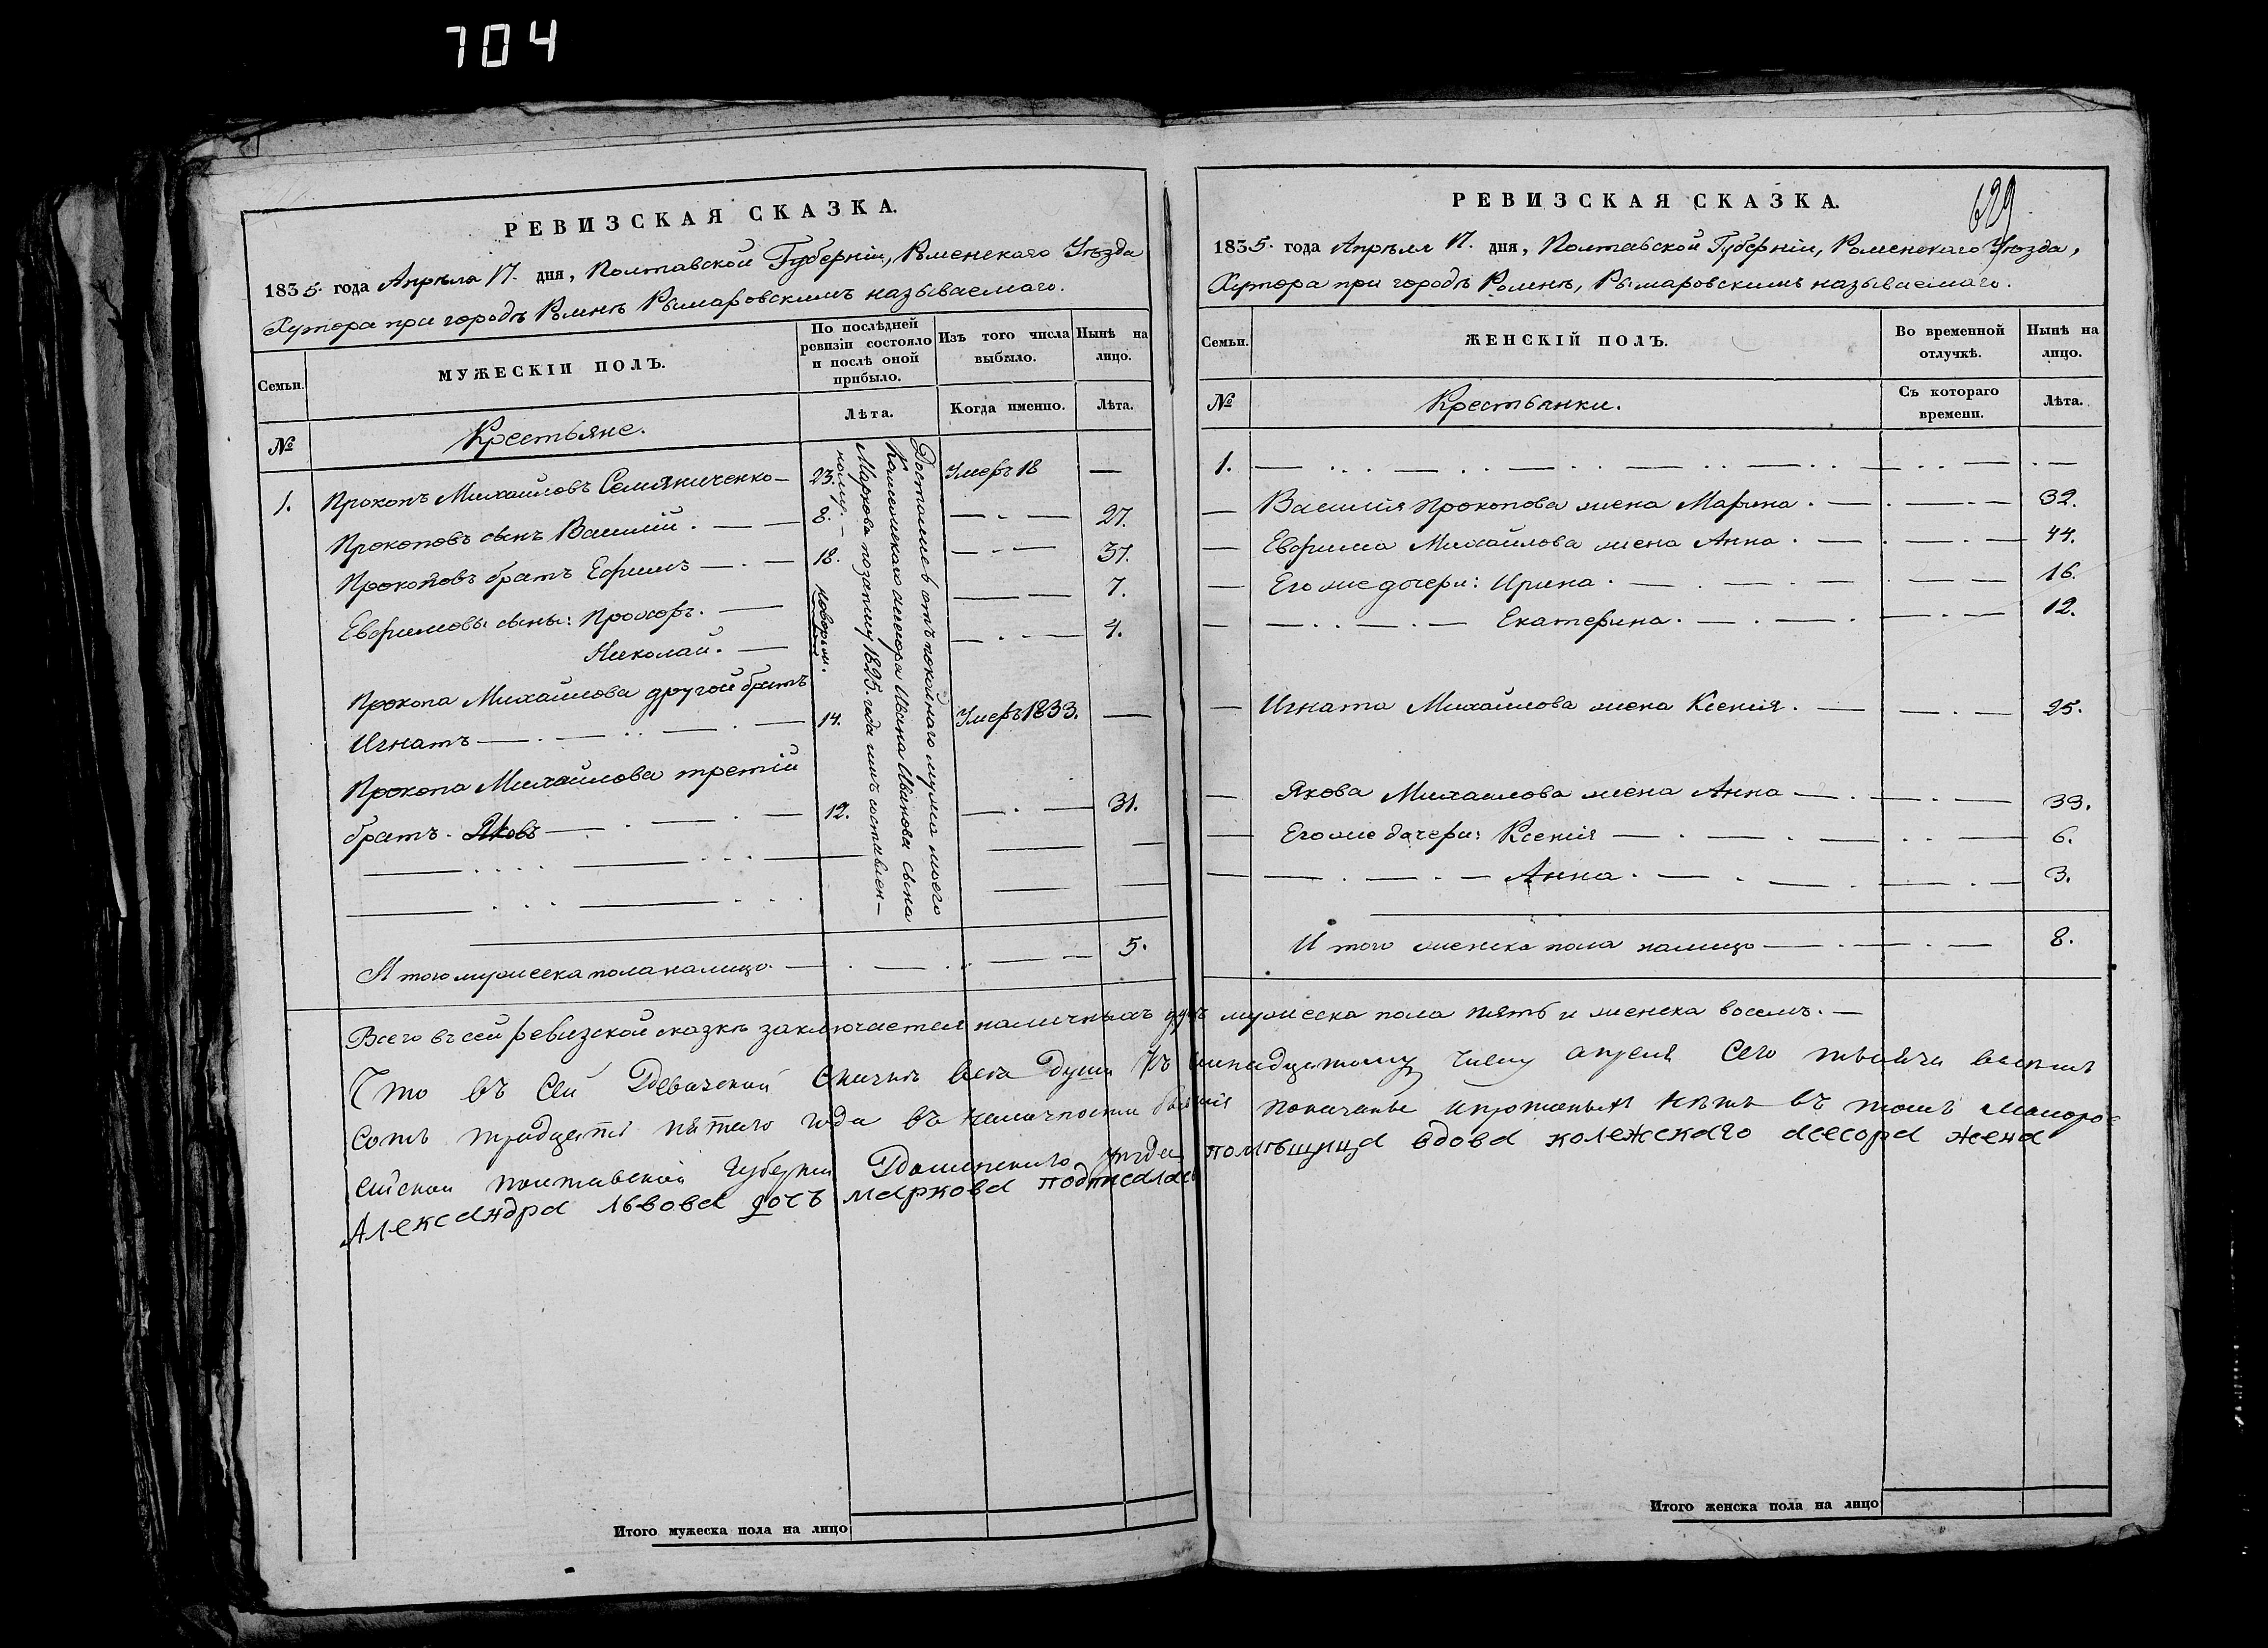 704
РЕВИЗСКАЯ СКАЗКА.
1835. года Апрѣля 17. дня, Полтавской Губерніи, Роменскаго Уѣзда
Хутора при городѣ Ромнѣ Рымаровскимъ называемаго.
Семьи.
МУЖЕСКІЙ ПОЛЪ.
По послѣдней ревизіи состояло и послѣ оной прибыло.
Изъ того числа выбыло.
Нынѣ на лицо.
№
Крестьяне.
Лѣта.
Когда именно.
Лѣта.
1. Прокопъ Михайловъ Семяниченко — 23. Умеръ 18 —
Прокоповъ сынъ Василій. — — 8. — . — 27.
Прокоповъ братъ Ефимъ — . — 18. — . — 37.
Евфимовы сыны: Прохоръ. — новорож. — — 7.
Николай. — — . — 4.
Прокопа Михайлова другой братъ
Игнатъ — . — . . — . — 14. Умеръ 1833. —
Прокопа Михайлова третій
братъ. Яковъ — . — . — 12. — . — 31.
Достались отъ покойнаго мужа моего
Колежскаго асессора Ивана Иванова сына
Маркова по запису 1825. года имъ составлен-
ному. —
И того мужеска пола налицо. — . — . . — — 5.
РЕВИЗСКАЯ СКАЗКА.
629
1835. года Апрѣля 17. дня, Полтавской Губерніи, Роменскаго Уѣзда,
Хутора при городѣ Ромнѣ, Рымаровскимъ называемаго.
Семьи.
ЖЕНСКІЙ ПОЛЪ.
Во временной отлучкѣ.
Нынѣ на лицо.
№
Крестьянки.
Съ котораго времени.
Лѣта.
1. — . . . — . . — . . — . . — . . —
— Василія Прокопова жена Марина. — . — . — 32.
— Евфима Михайлова жена Анна. — . — . — 44.
— Его же дочери: Ирина. — . — . — . — — 16.
— — . . — . — Екатерина. — . — . — . — 12.
— Игната Михайлова жена Ксенія. — — . — 25.
— Якова Михайлова жена Анна — . — . — 33.
— Его же дочери: Ксенія — . — . — . . — 6.
— — . — . — Анна. — . — . — . — 3.
И того женска пола налицо — . — . — 8.
Всего въ сей ревизской сказкѣ заключается наличныхъ душъ мужеска пола пять и женска восемь. —
Что въ Сей Ревизской Скаскѣ всѣ души Къ
числу апреля Сего тысяча восемъ
Сотъ тридцати пятаго года въ наличности
показаны и прописныхъ нѣтъ въ томъ малоро-
сийской полтавской губернии Роменского уезда помѣщица вдова колежскаго асесора жена
Александра львова дочъ маркова подписалась
Итого мужеска пола на лицо
Итого женска пола на лицо